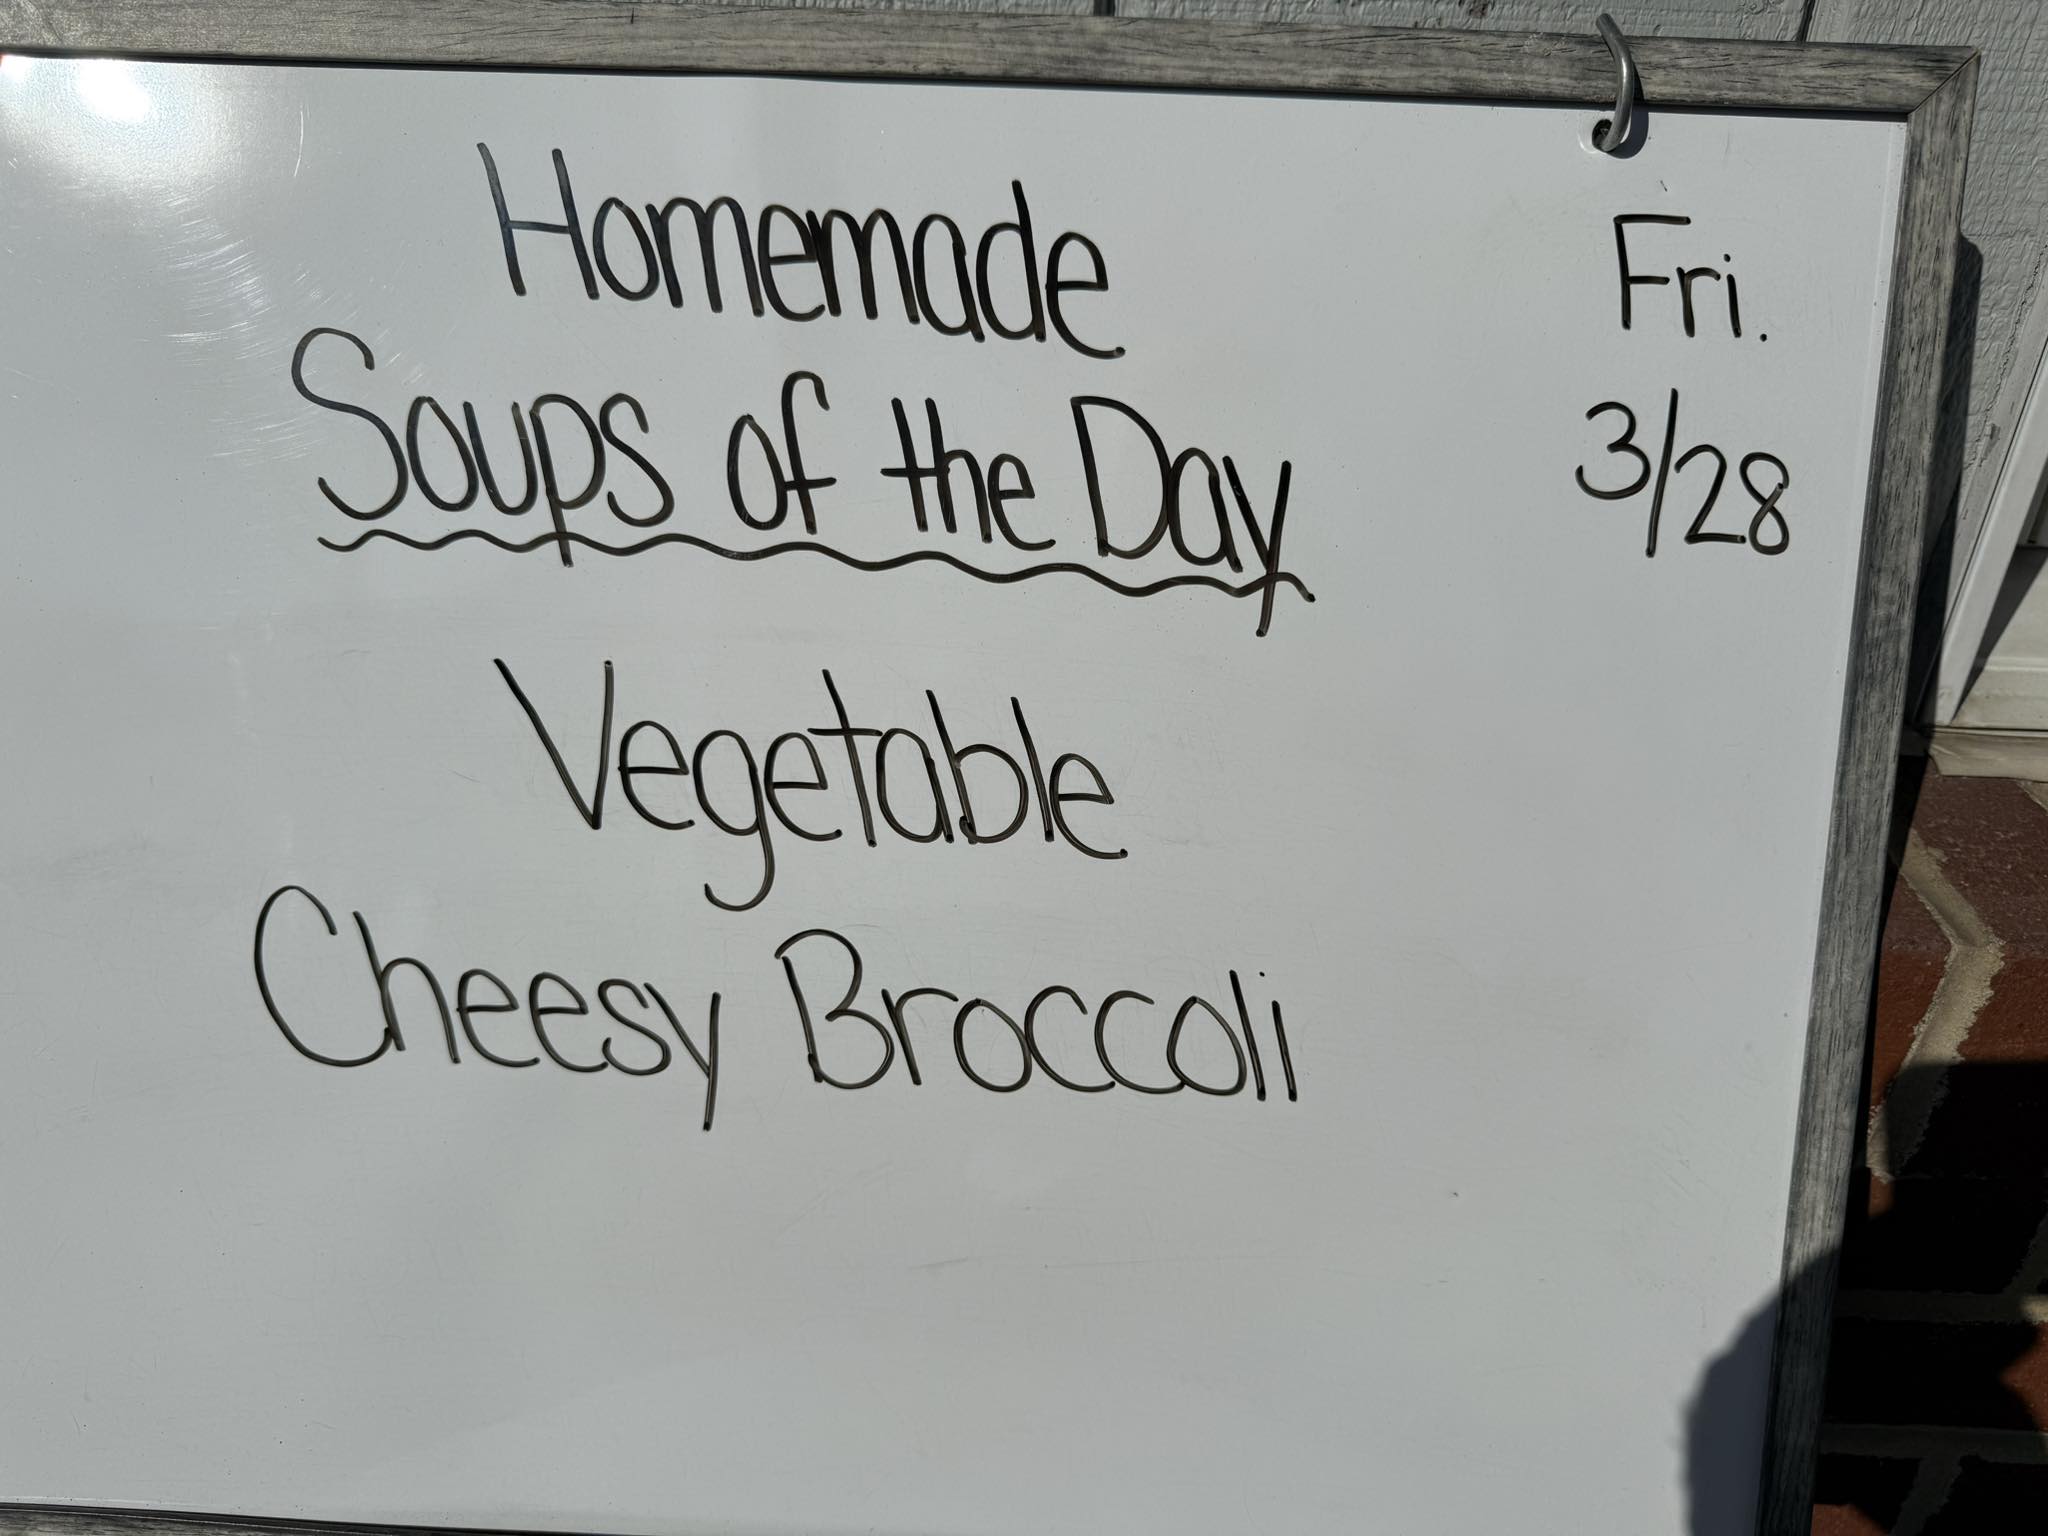 Homemade
Soups of the Day
Fri.
3/28
Vegetable
Cheesy Broccoli